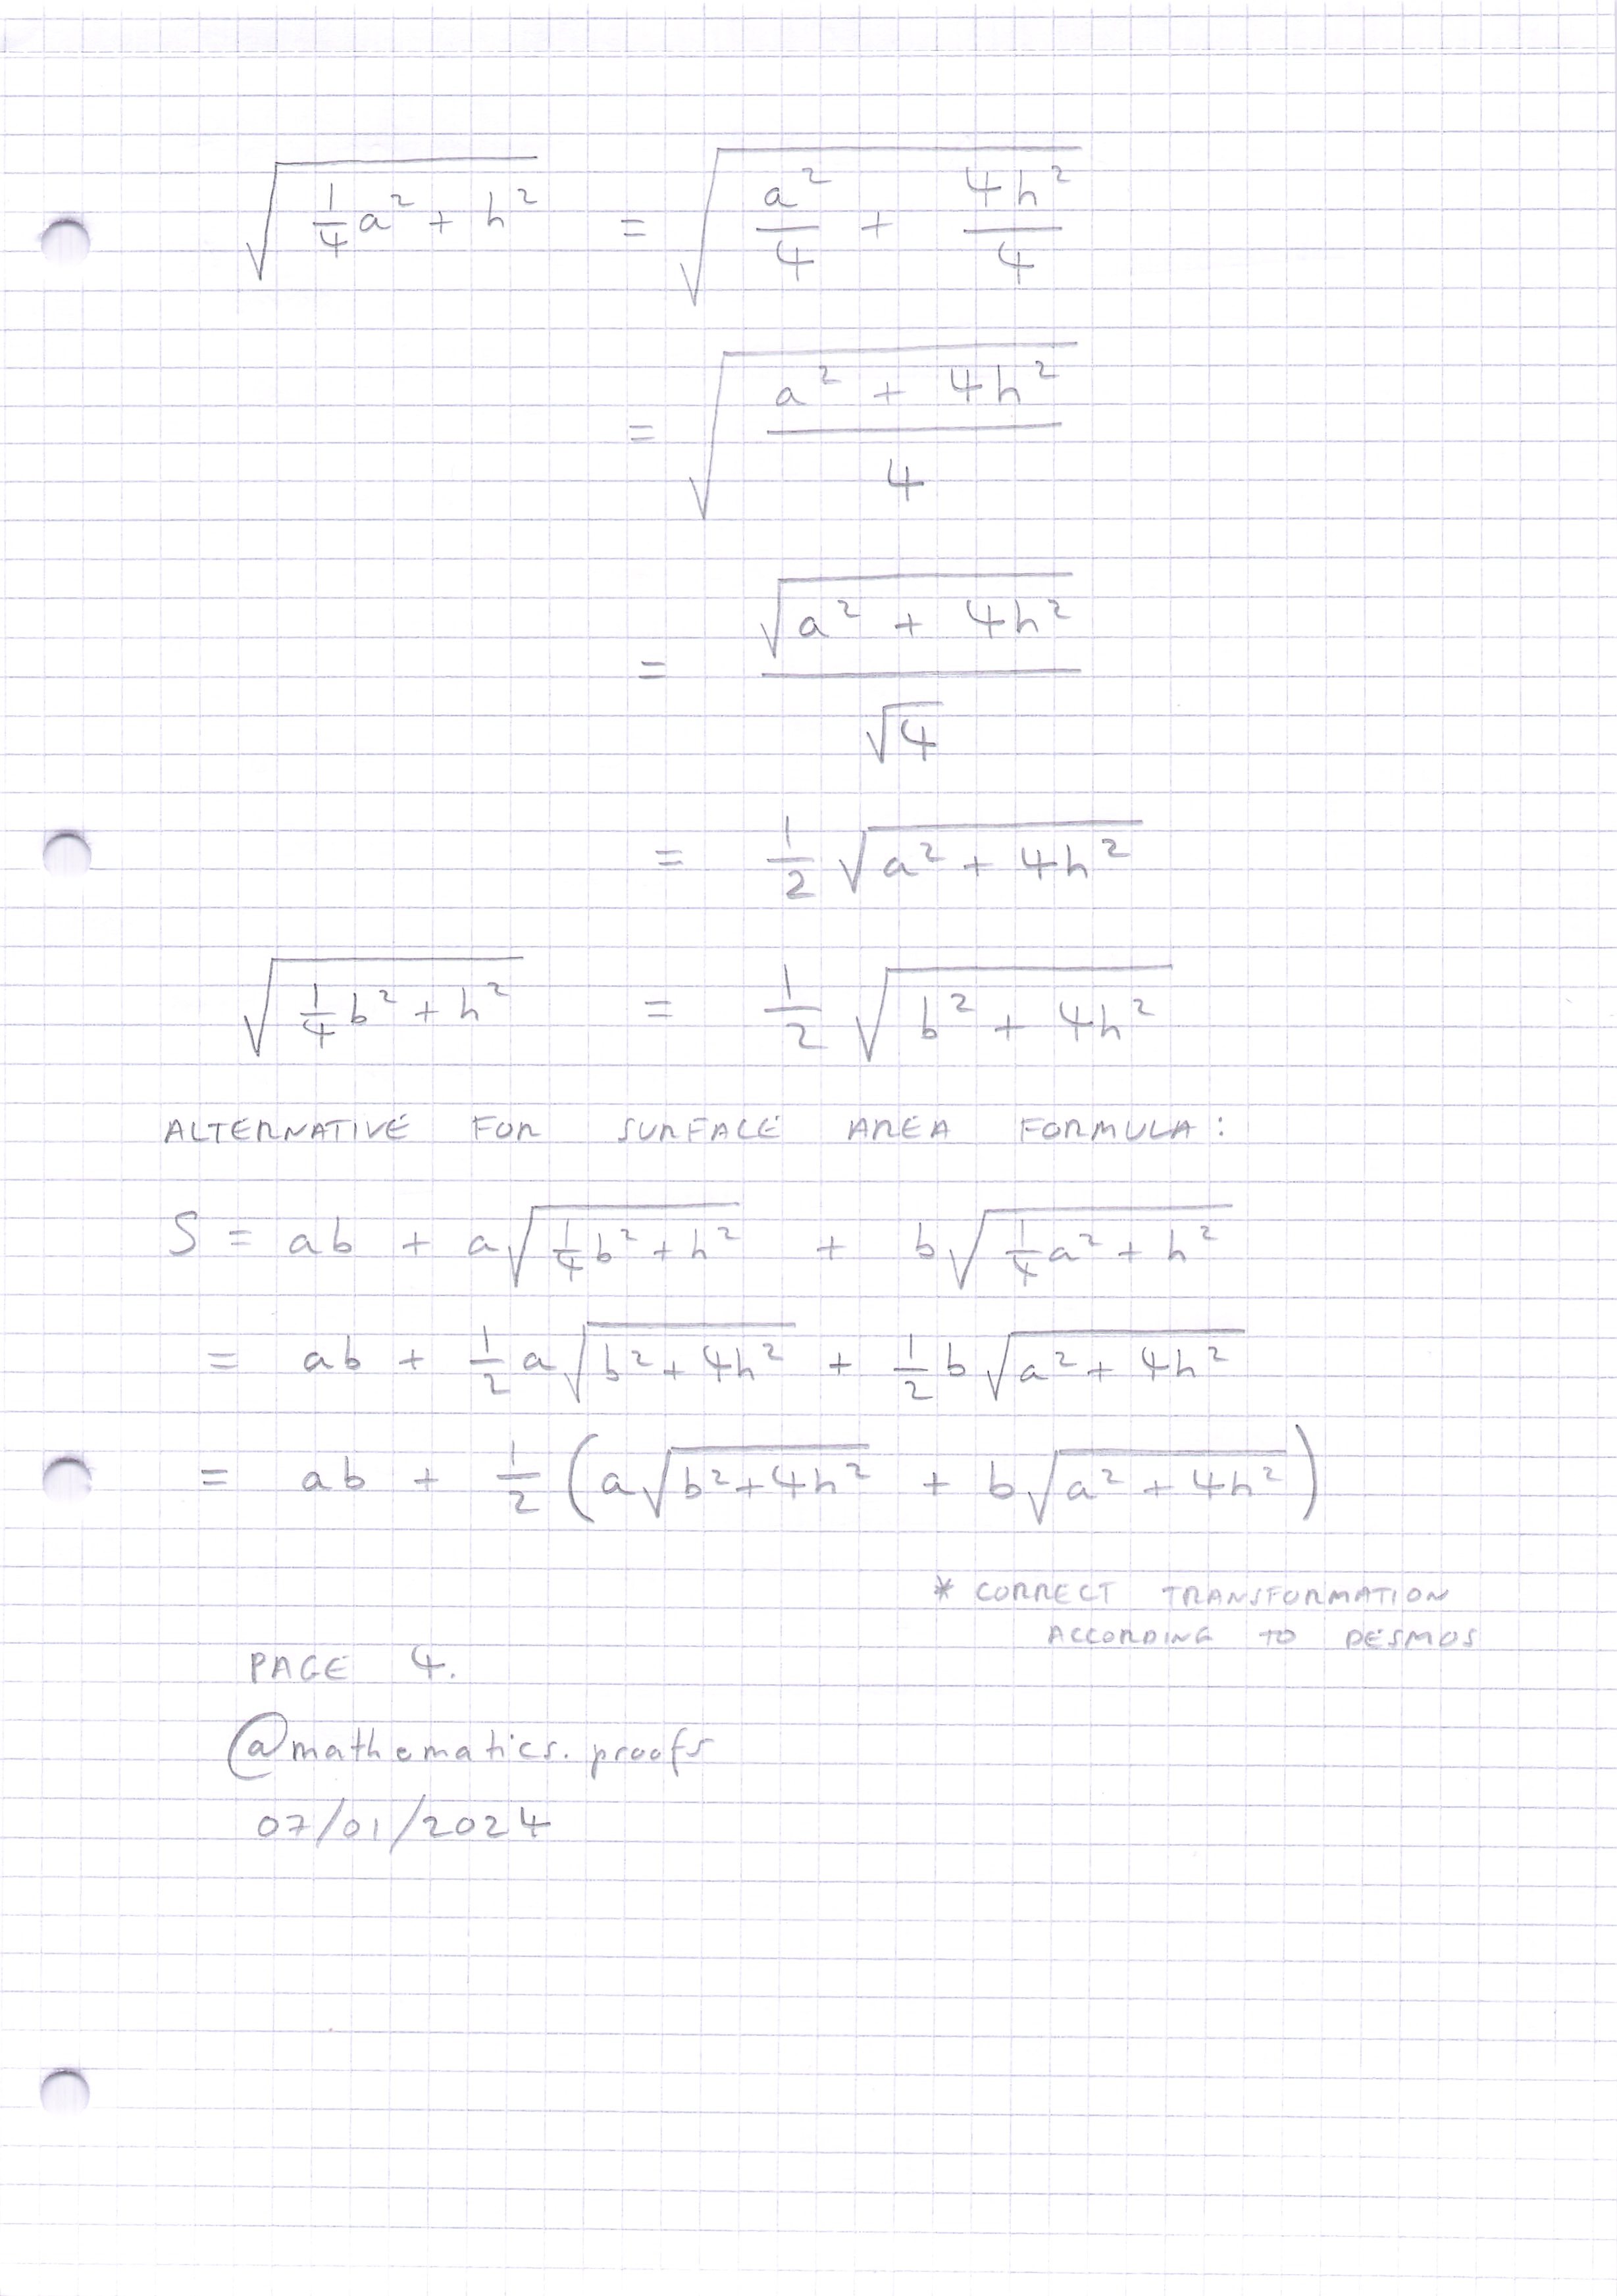 √(1/4 a² + h²) = √(a²/4 + 4h²/4)
= √((a² + 4h²)/4)
= √(a² + 4h²)/√4
= 1/2 √(a² + 4h²)
√(1/4 b² + h²) = 1/2 √(b² + 4h²)
ALTERNATIVE FOR SURFACE AREA FORMULA:
S = ab + a√(1/4 b² + h²) + b√(1/4 a² + h²)
= ab + 1/2 a√(b² + 4h²) + 1/2 b√(a² + 4h²)
= ab + 1/2 (a√(b² + 4h²) + b√(a² + 4h²))
* CORRECT TRANSFORMATION
ACCORDING TO DESMOS
PAGE 4.
@mathematics.proofs
07/01/2024